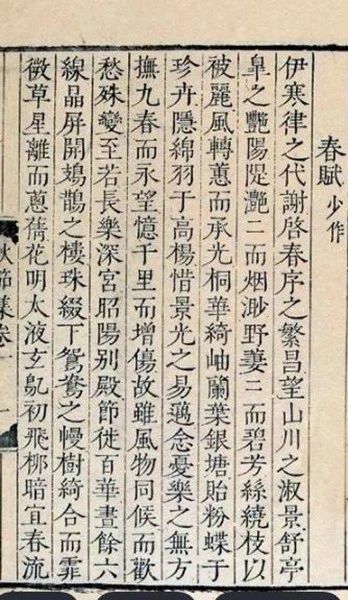 春賦少作
伊寒律之代謝啓春序之繁昌望山川之淑景舒亭
皐之豔陽隄灔二而烟渺野萋二而碧芳絲繞枝以
被麗風轉蕙而承光桐華綺岫蘭葉銀塘貽粉蝶于
珍卉隱綿羽于高楊惜景光之易邁念憂樂之無方
撫九春而永望憶千里而增傷故雖風物同候而歡
愁殊變至若長樂深宮昭陽別殿節徙百華晝餘六
線晶屏開鳷鵲之樓珠綴下鴛鴦之幔樹綺合而霏
微草星離而蔥蒨花明太液玄鳦初飛柳暗宜春流
秋笳集卷一